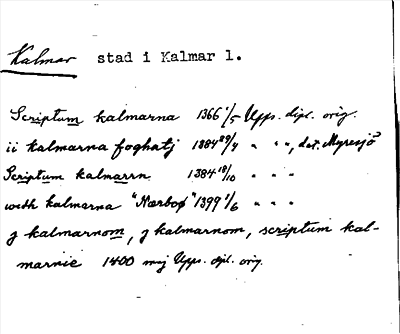 Kalmar stad i Kalmar l.
Scriptum kalmarna 1366 1/5 Upps. dipl. orig.
ii kalmarna foghatj 1384 29/4 " " ", dat. Myresjö
Scriptum kalmarrn 1384 18/10 " " "
widh kalmarna "Nærboo" 1399 1/6 " " "
j kalmarnom, j kalmarnom, scriptum kal-
marnie 1400 maj Upps. dipl. orig.